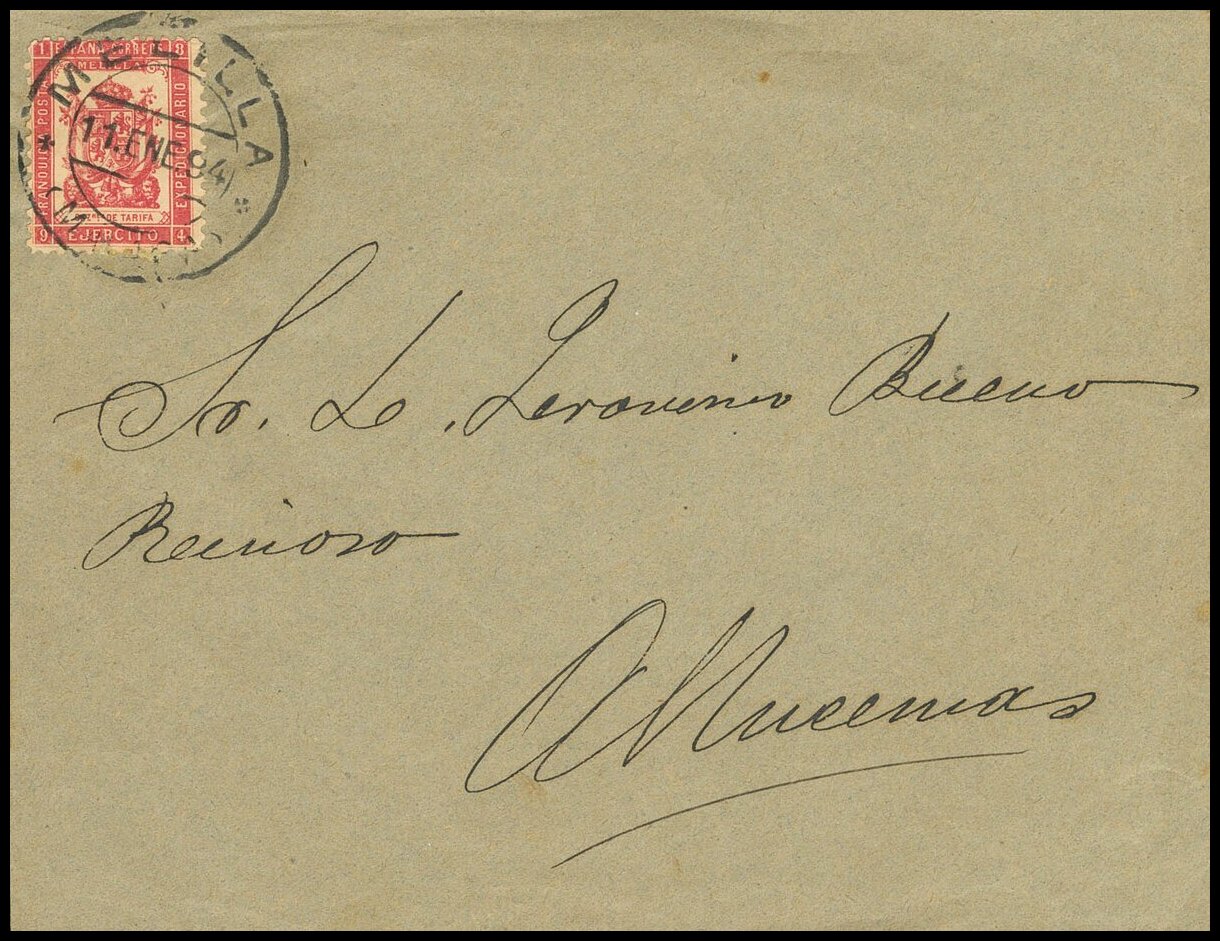 1 ESPAÑA CORREOS 8
MELILLA
FRANQUICIA POSTAL
EXPEDICIONARIO
CAZ.ES DE TARIFA
9 EJERCITO 4
MELILLA
11.ENE.94
Sr. D. Geronimo Bueno
Reinoso
Alhucemas